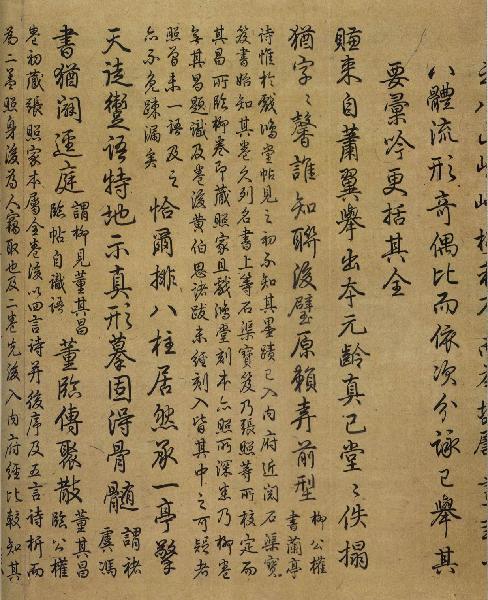 八體流形奇偶比而依次分詠已舉其
要彙吟更括其全
賺來自蕭翼舉出本元齡真已堂〻佚搨
猶字〻馨誰知聯後璧原賴弆前型 柳公權
書蘭亭
詩惟於戲鴻堂帖見之初不知其墨蹟已入內府近閱石渠寶
笈書始知其卷久列名書上等石渠寶笈乃張照等所校定而
其昌所臨柳卷即藏照家且戲鴻堂刻本亦照所深悉乃柳卷
無其昌題識及卷後黃伯思諸跋未經刻入皆其中之可疑者
照曾未一語及之
亦不免踈漏矣
恰爾排八柱居然承一亭擎
天徒躗語特地示真形摹固得骨髓 謂褚
虞馮
書猶闢逕庭 謂柳見董其昌
臨帖自識語
董臨傳聚散 董其昌
臨公權
卷初藏張照家本屬全卷後以四言詩并後序及五言詩析而
為二蓋照身後為人竊取也及二卷先後入內府經比較知其